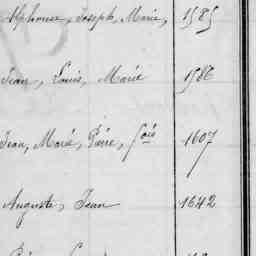 Alphonse, Joseph, Marie, 1585
Jean, Louis, Marie 1586
Jean, Marie, Pierre, fois 1607
Auguste, Jean 1642